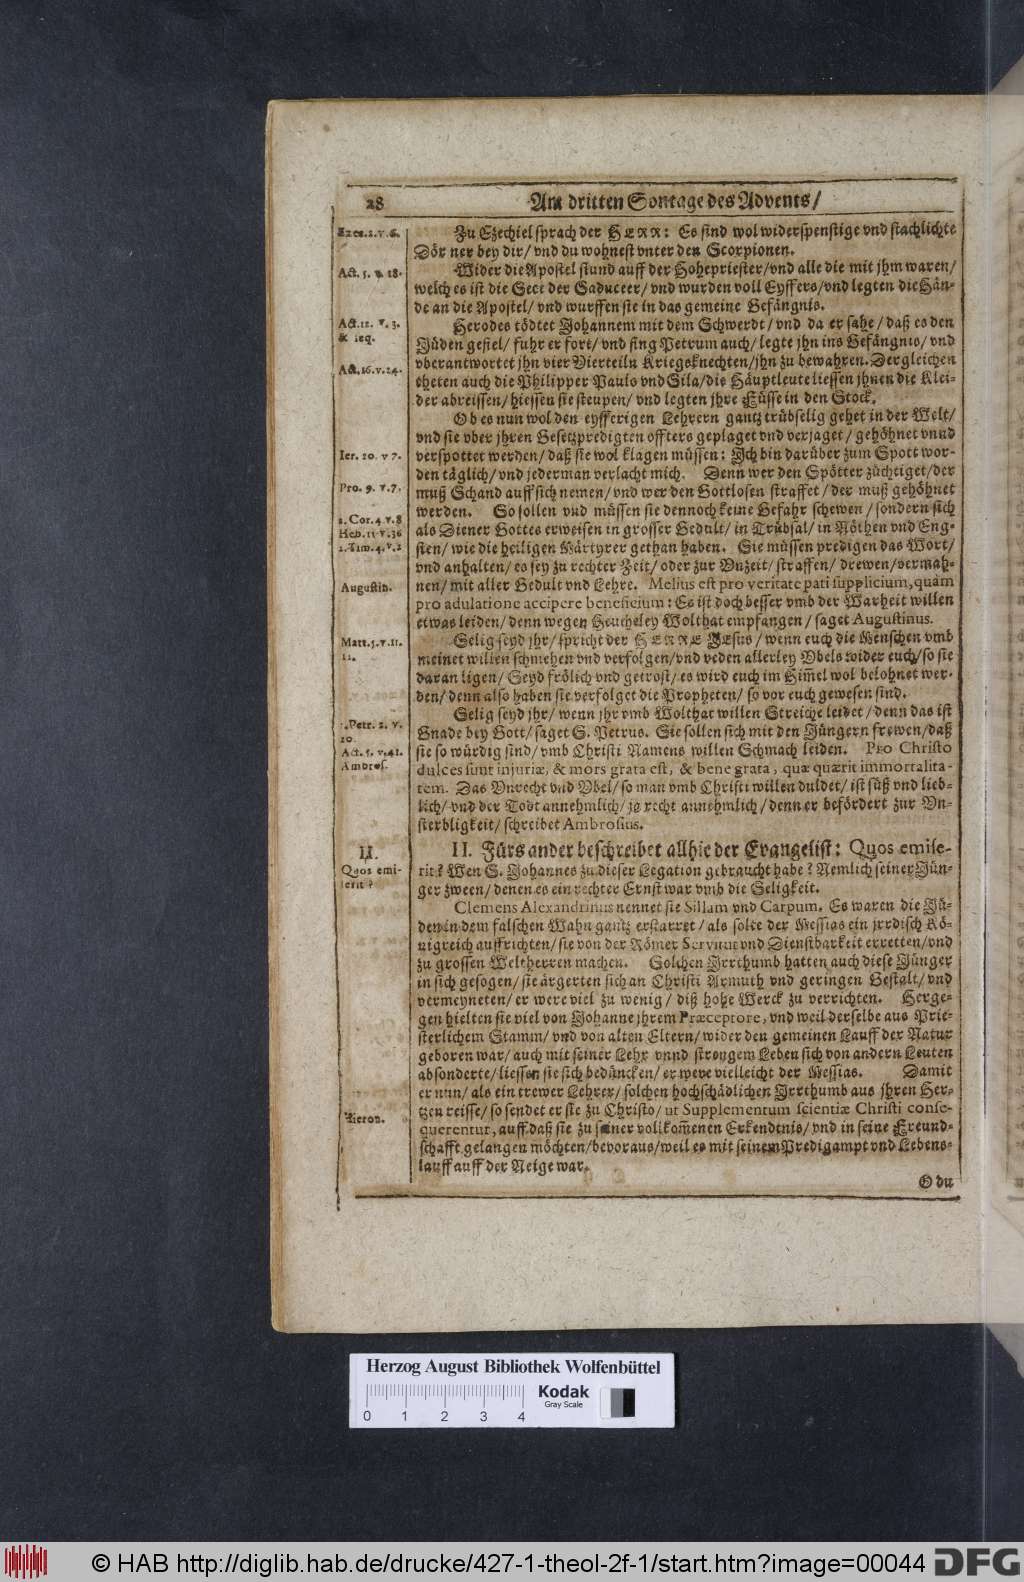 28
Am dritten Sontage des Advents/
Ezec.2.v.6.
Zu Ezechiel sprach der HERR: Es sind wol widerspenstige vnd stachlichte
Dörner bey dir/ vnd du wohnest vnter den Scorpionen.
Act. 5. v. 18.
Wider die Apostel stund auff der Hohepriester/vnd alle die mit jhm waren/
welches ist die Sect der Saduceer/ vnd wurden voll Eyffers/vnd legten die Hän-
de an die Apostel/ vnd wurffen sie in das gemeine Gefängnis.
Act.12. v. 3.
& seq.
Herodes tödtet Johannem mit dem Schwerdt/ vnd da er sahe/ daß es den
Jüden gefiel/ fuhr er fort/ vnd fing Petrum auch/ legte jhn ins Gefängnis/ vnd
vberantwortet jhn vier Vierteiln Kriegsknechten/jhn zu bewahren. Dergleichen
Act.16.v.24.
theten auch die Philipper Paulo vnd Sila/die Häuptleute liessen jhnen die Klei-
der abreissen/ hiessen sie steupen/ vnd legten jhre Füsse in den Stock.
Ob es nun wol den eyfferigen Lehrern gantz trübselig gehet in der Welt/
vnd sie vber jhren Gesetzpredigten offters geplaget vnd verjaget/ gehöhnet vnnd
Ier. 20. v 7.
verspottet werden/ daß sie wol klagen müssen: Ich bin darüber zum Spott wor-
den täglich/ vnd jederman verlacht mich. Denn wer den Spötter züchtiget/der
Pro. 9. v.7.
muß Schand auff sich nemen/ vnd wer den Gottlosen straffet/ der muß gehöhnet
werden. So sollen vnd müssen sie dennoch keine Gefahr schewen/ sondern sich
2. Cor.4.v.8
Heb. 11 v.36
2. Tim. 4. v.2
als Diener Gottes erweisen in grosser Gedult/ in Trübsal/ in Nöthen vnd Eng-
sten/ wie die heiligen Märtyrer gethan haben. Sie müssen predigen das Wort/
vnd anhalten/ es sey zu rechter Zeit/ oder zur Vnzeit/ straffen/ drewen/vermah-
Augustin.
nen/ mit aller Gedult vnd Lehre. Melius est pro veritate pati supplicium, quàm
pro adulatione accipere beneficium: Es ist doch besser vmb der Warheit willen
etwas leiden/ denn wegen Heucheley Wolthat empfangen/ saget Augustinus.
Matt.5.v.11.
12.
Selig seyd jhr/ spricht der HERRE JEsus/ wenn euch die Menschen vmb
meinet willen schmehen vnd verfolgen/vnd reden allerley Vbels wider euch/so sie
daran liegen/ Seyd frölich vnd getrost/ es wird euch im Himel wol belohnet wer-
den/ denn also haben sie verfolget die Propheten/ so vor euch gewesen sind.
1.Petr. 2. v.
20.
Selig seyd jhr/ wenn jhr vmb Wolthat willen Streiche leidet/ denn das ist
Gnade bey Gott/ saget S. Petrus. Sie sollen sich mit den Jüngern frewen/daß
Act. 5. v.41.
sie so würdig sind/ vmb Christi Namens willen Schmach leiden. Pro Christo
Ambros.
dulces sunt injuriæ, & mors grata est, & bene grata, quæ quærit immortalita-
tem. Das Vnrecht vnd Vbel/ so man vmb Christi willen duldet/ ist süß vnd lieb-
lich/ vnd der Todt annehmlich/ ja recht annehmlich/ denn er befördert zur Vn-
sterbligkeit/ schreibet Ambrosius.
II.
Quos emi-
serit?
II. Fürs ander beschreibet allhie der Evangelist: Quos emise-
rit? Wen S. Johannes zu dieser Legation gebraucht habe? Nemlich seiner Jün-
ger zween/ denen es ein rechter Ernst war vmb die Seligkeit.
Clemens Alexandrinus nennet sie Sillam vnd Carpum. Es waren die Jü-
den in dem falschen Wahn gantz erstarret/ als solte der Messias ein jrrdisch Kö-
nigreich auffrichten/ sie von der Römer Servitut vnd Dienstbarkeit erretten/vnd
zu grossen Weltherren machen. Solchen Irrthumb hatten auch diese Jünger
in sich gesogen/ sie ärgerten sich an Christi Armuth vnd geringen Gestalt/ vnd
vermeyneten/ er were viel zu wenig/ diß hohe Werck zu verrichten. Herge-
gen hielten sie viel von Johanne jhrem Præceptore, vnd weil derselbe aus Prie-
sterlichem Stamm/ vnd von alten Eltern/ wider den gemeinen Lauff der Natur
geboren war/ auch mit seiner Lehr vnnd strengem Leben sich von andern Leuten
absonderte/ liessen sie sich bedüncken/ er were vielleicht der Messias. Damit
er nun/ als ein trewer Lehrer/ solchen hochschädlichen Irrthumb aus jhren Her-
Hieron.
tzen reisse/ so sendet er sie zu Christo/ ut Supplementum scientiæ Christi conse-
querentur, auff daß sie zu seiner vollkommenen Erkendtnis/ vnd in seine Freund-
schafft gelangen möchten/bevoraus/weil es mit seinem Predigampt vnd Lebens-
lauff auff der Neige war.
O du
Herzog August Bibliothek Wolfenbüttel
0 1 2 3 4
Kodak
Gray Scale
© HAB http://diglib.hab.de/drucke/427-1-theol-2f-1/start.htm?image=00044
DFG